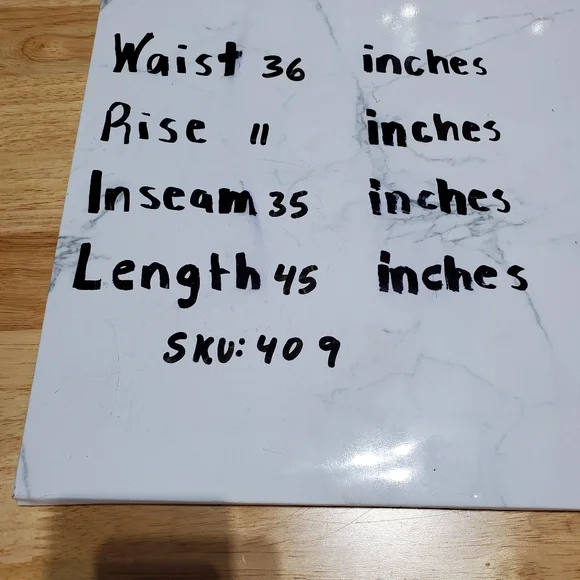 Waist 36 inches
Rise 11 inches
Inseam 35 inches
Length 45 inches
SKU: 409